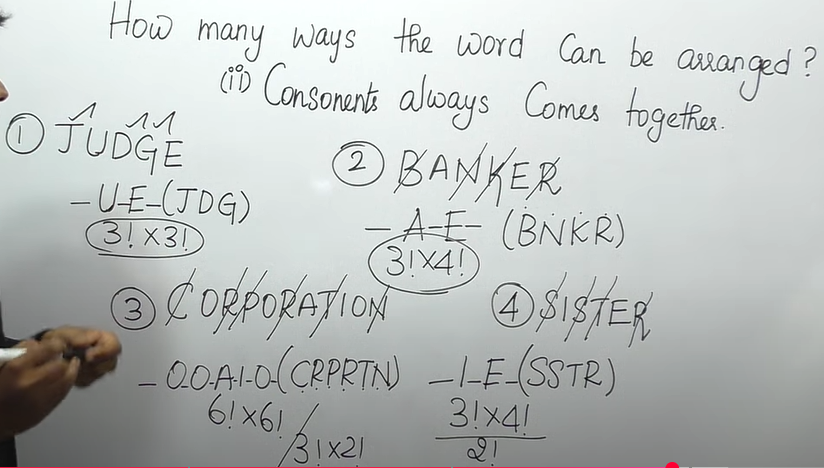 How many ways the word Can be arranged?
(ii) Consonents always Comes together.
① JUDGE
- U-E-(JDG)
3! × 3!
② BANKER
- A-E- (BNKR)
3! × 4!
③ CORPORATION
- O-O-A-I-O-(CRPRTN)
6! × 6! / 3! × 2!
④ SISTER
- I-E-(SSTR)
3! × 4!
2!